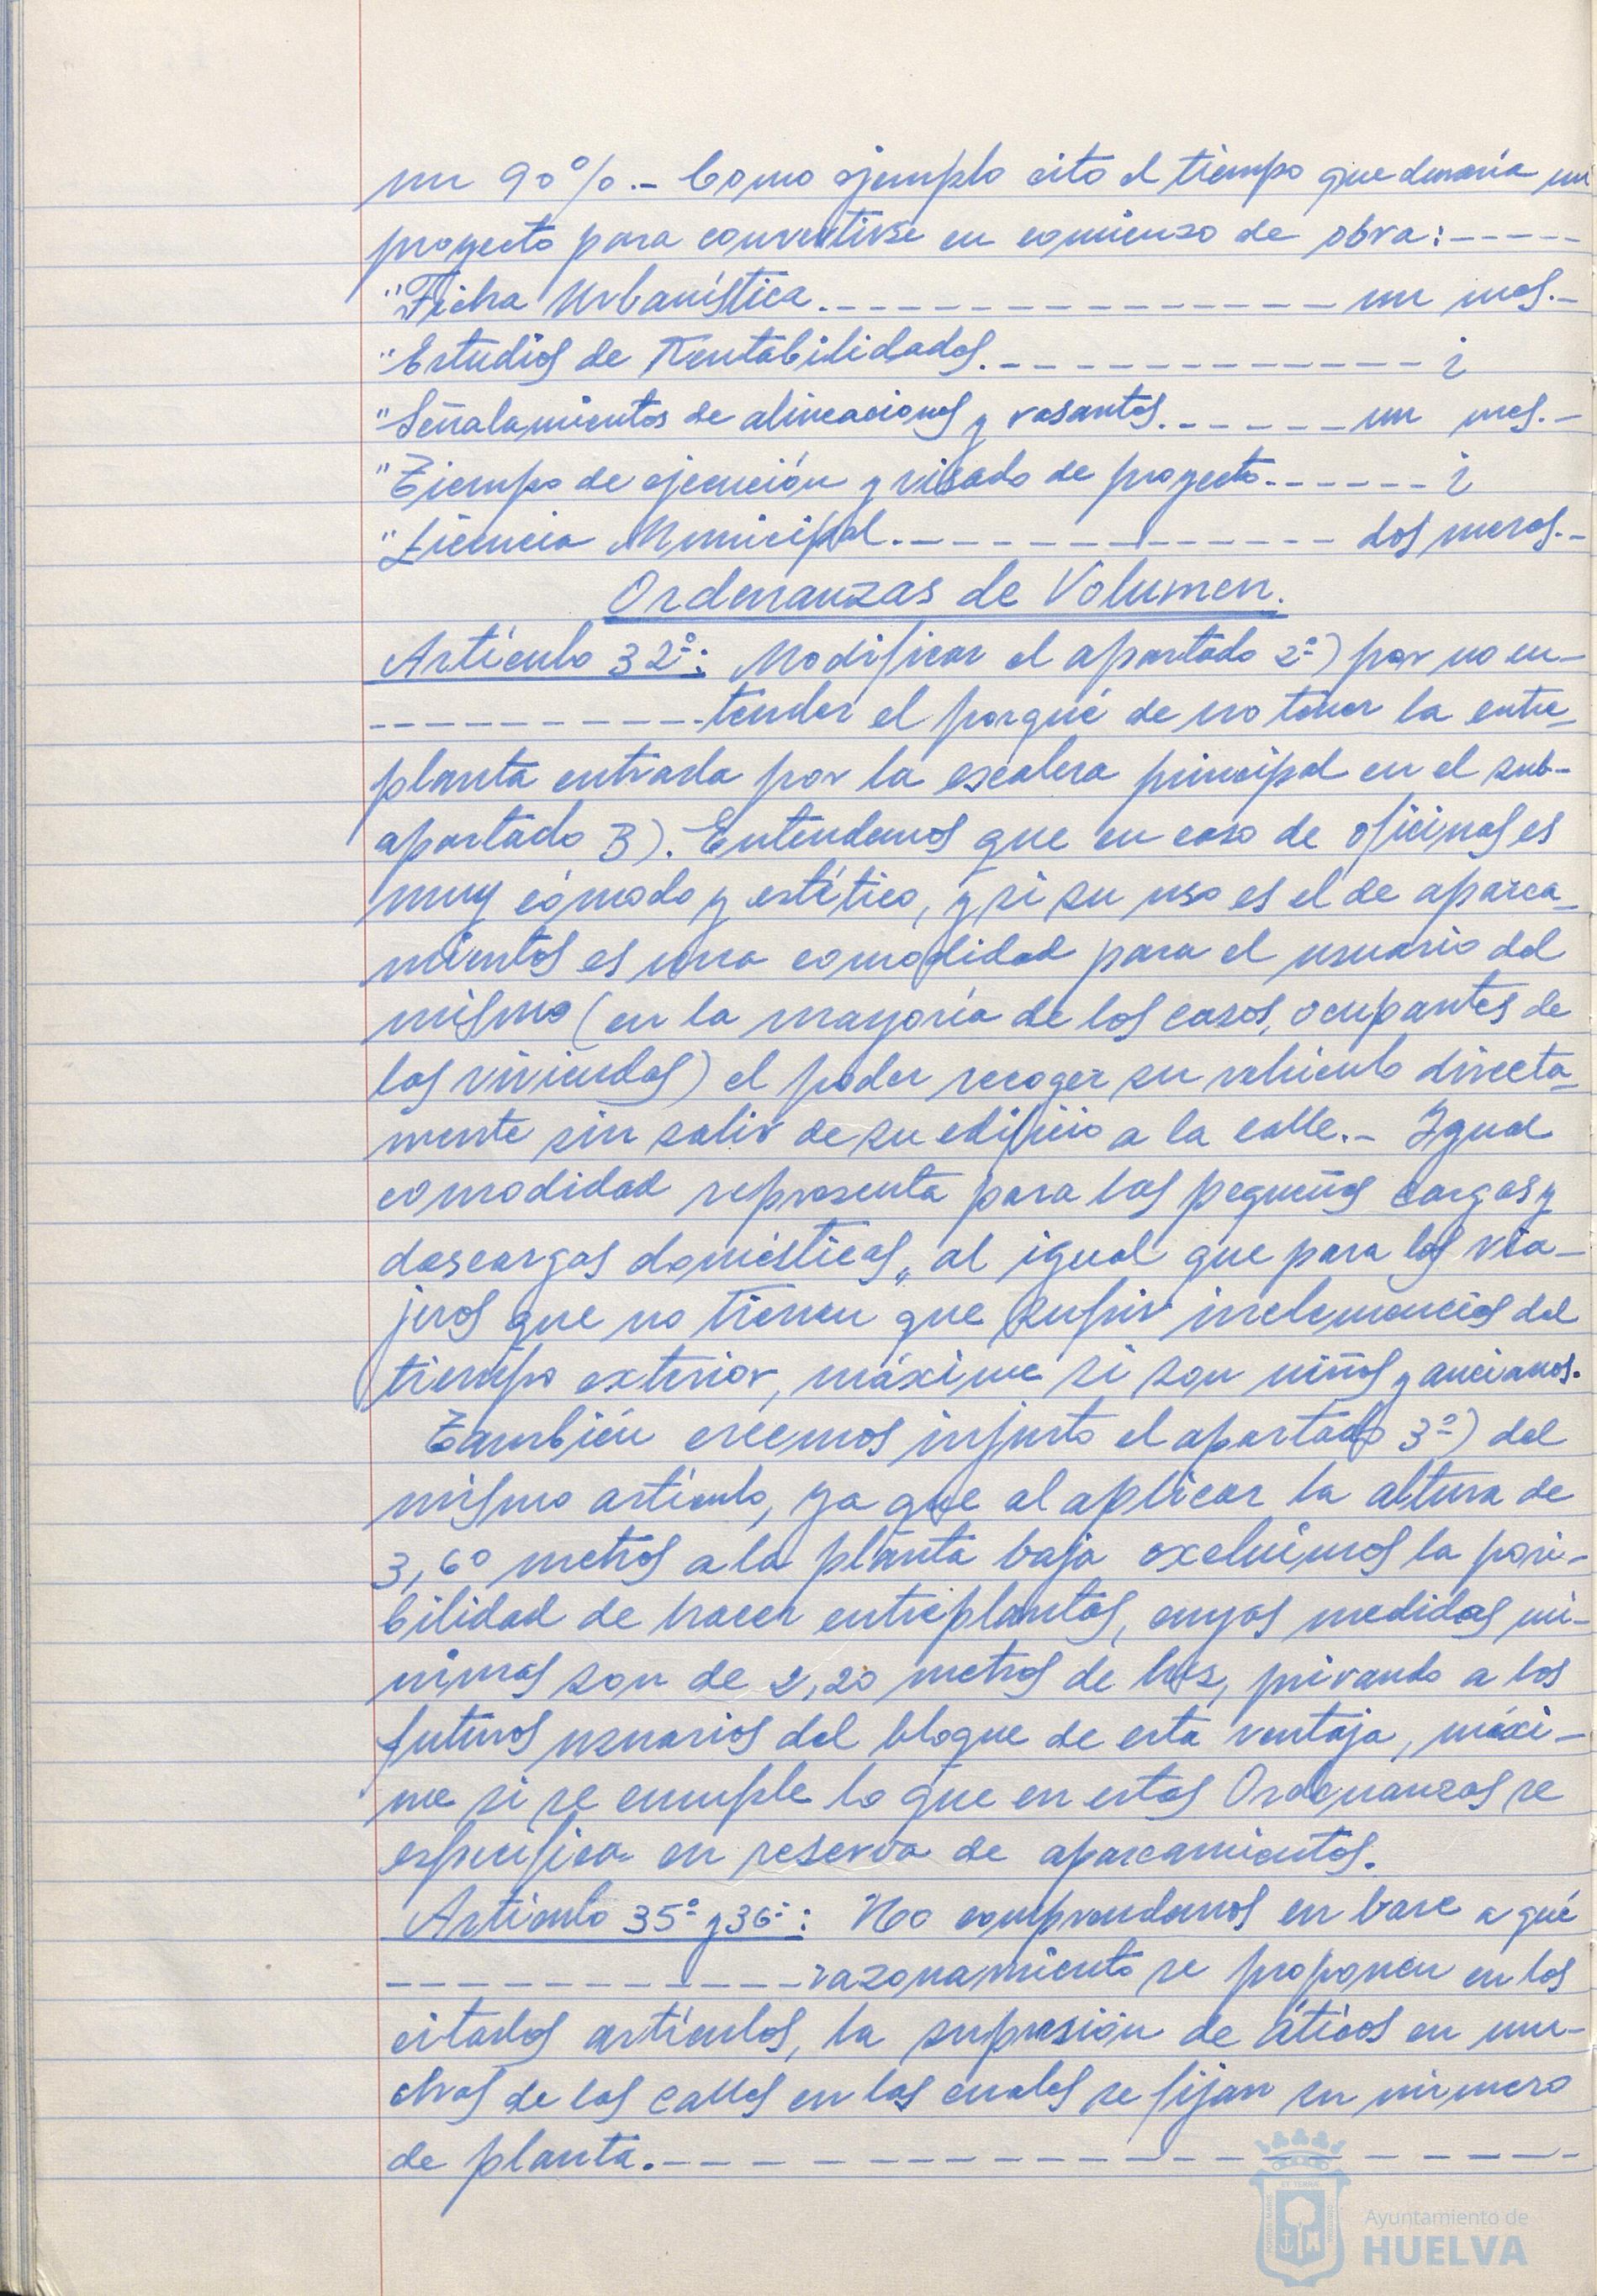 un 90%.- Como ejemplo cito el tiempo que duraría un
proyecto para convertirse en comienzo de obra:-----
"Ficha Urbanística.--------------- un mes.-
"Estudios de Rentabilidades.------------- ¿
"Señalamientos de alineaciones y rasantes.------ un mes.-
"Tiempo de ejecución y visado de proyecto.------ ¿
"Licencia Municipal.-------------- dos meses.-
Ordenanzas de Volumen.
Artículo 32º: Modificar el apartado 2º) por no en-
----------tender el porqué de no tener la entre-
planta entrada por la escalera principal en el sub-
apartado B). Entendemos que en caso de oficinas es
muy cómodo y estético, y si su uso es el de aparca-
mientos es una comodidad para el usuario del
mismo (en la mayoría de los casos, ocupantes de
las viviendas) el poder recoger su vehiculo directa-
mente sin salir de su edificio a la calle.- Igual
comodidad representa para las pequeñas cargas y
descargas domésticas, al igual que para los via-
jeros que no tienen que sufrir inclemencias del
tiempo exterior, máxime si son niños y ancianos.
También creemos injusto el apartado 3º) del
mismo artículo, ya que al aplicar la altura de
3,60 metros a la planta baja excluimos la posi-
bilidad de hacer entreplantas, cuyas medidas mí-
nimas son de 2,20 metros de luz, privando a los
futuros usuarios del bloque de esta ventaja, máxi-
me si se cumple lo que en estas Ordenanzas se
especifica en reserva de aparcamientos.
Artículo 35º y 36º: No comprendemos en base a qué
------------razonamiento se proponen en los
citados artículos, la supresión de áticos en mu-
chas de las calles en las cuales se fijan su número
de planta.------------------
Ayuntamiento de
HUELVA